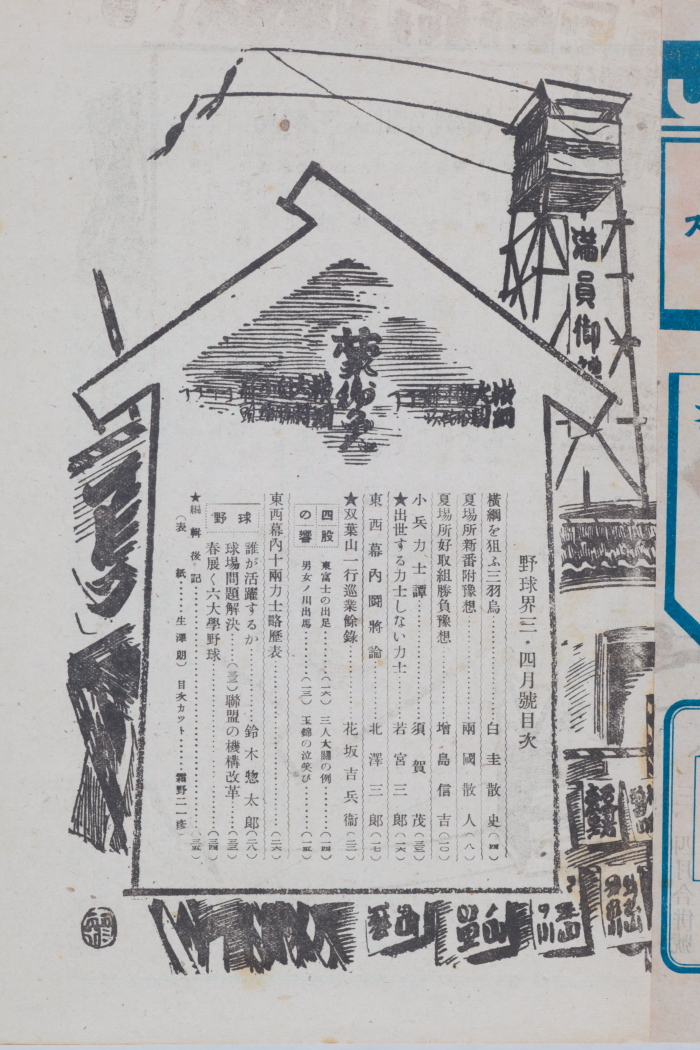 満員御
蒙御免
横綱
大関
横綱
大関
野球界三・四月號目次
横綱を狙ふ三羽烏……白圭散史(四)
夏場所新番附豫想……兩國散人(八)
夏場所好取組勝負豫想……增島信吉(一〇)
小兵力士譚……須賀茂(三)
★出世する力士しない力士……若宮三郎(一六)
東西幕內鬪將論……北澤三郎(一七)
★双葉山一行巡業餘錄……花坂吉兵衞(三)
四股の響
東富士の出足……(一六)
三人大關の例……(一四)
男女ノ川出馬……(一三)
玉錦の泣笑ひ……(一五)
東西幕內十兩力士略歷表……(二六)
野球
誰が活躍するか……鈴木惣太郞(二八)
球場問題解決……(三)
聯盟の機構改革……(三)
春展く六大學野球……(三四)
★編輯後記……(三五)
(表紙……生澤朗)
目次カット……霜野二一彥